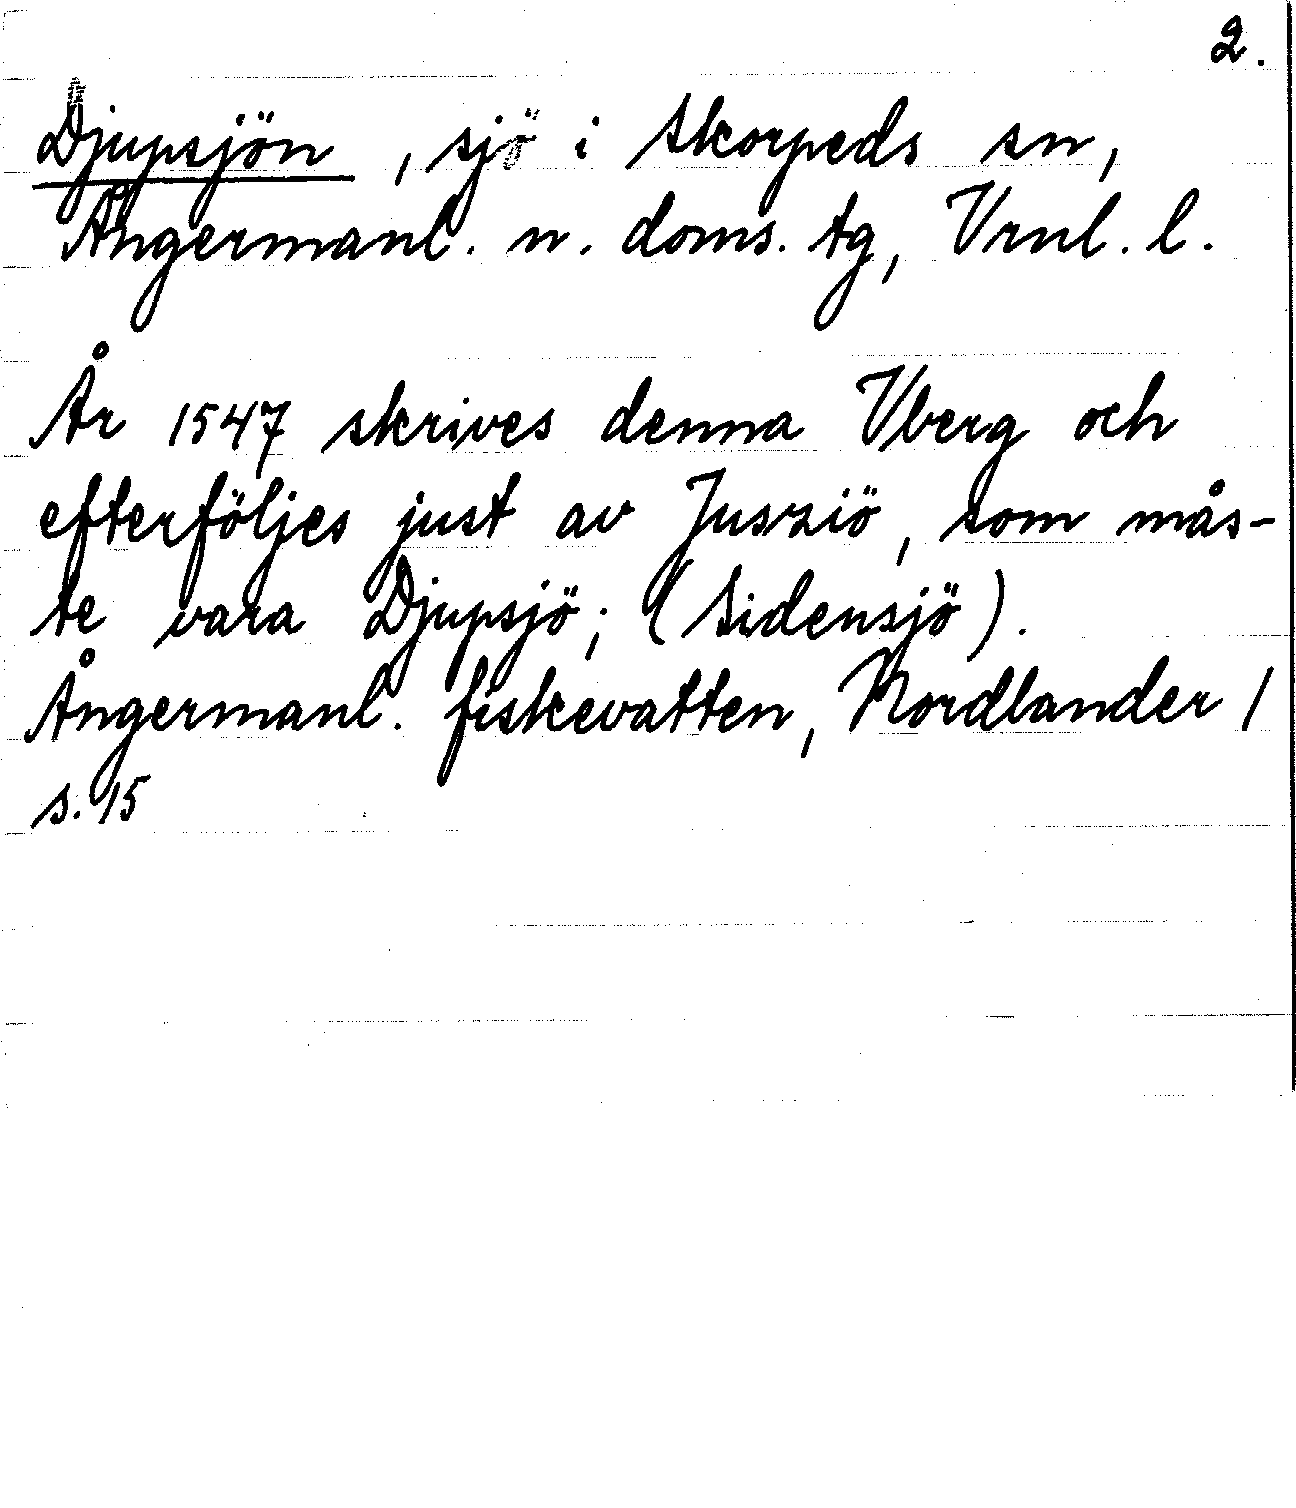 2.
Djupsjön, sjö i Skorpeds sn,
Ångermanl. n. doms. tg, Vrnl. l.
År 1547 skrives denna Vberg och
efterföljes just av Juszziö, som mås-
te vara Djupsjö; (Sidensjö).
Ångermanl. fiskevatten, Nordlander /
s. 15